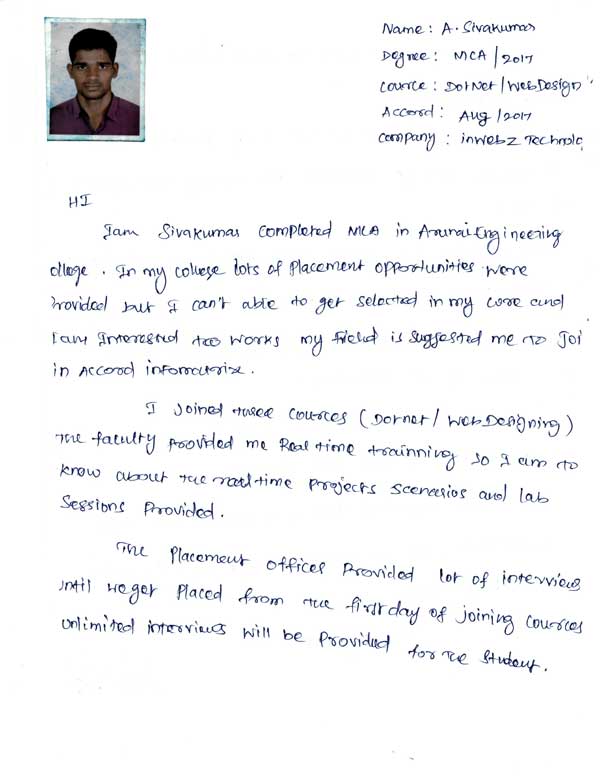 Name : A. Sivakumar
Degree : MCA / 2017
Cource : DotNet / WebDesign
Accord : Aug / 2017
Company : inwebz Technolo
HI
I am Sivakumar completed MCA in Arunai Engineering
ollege . In my college lots of Placement opportunities were
rovided but I can't able to get selected in my core and
I am Interested too works my field is suggested me to Joi
in Accord
I Joined these cources ( Dotnet / Web Designing )
The faculty provided me Real time trainning so I am to
know about the real time projects scenerios and lab
Sessions Provided .
The Placement officer Provided lot of interviews
until we get Placed from the first day of joining cources
unlimited interviews will be Provided for the Student .